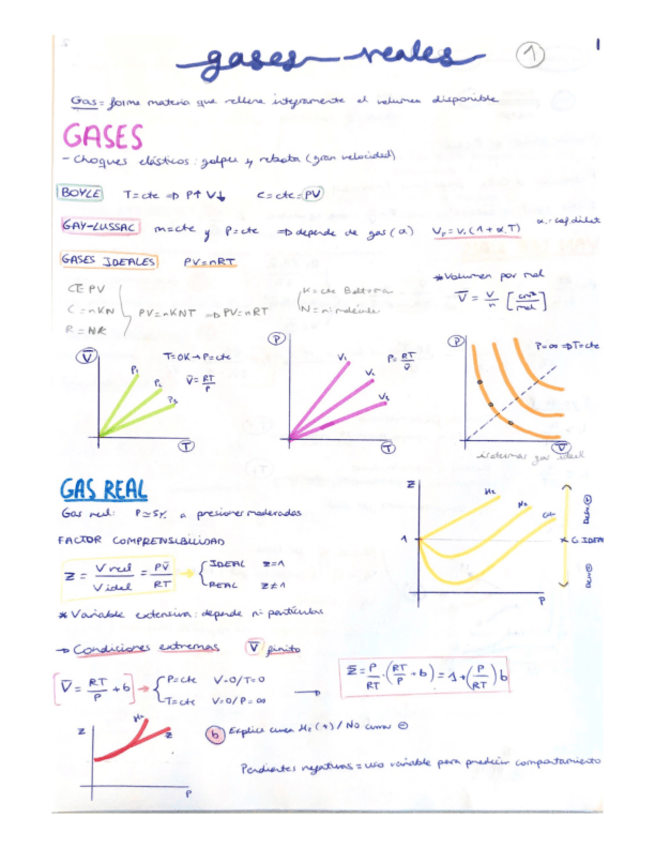 gases reales 1
1
Gas = forma materia que rellena integramente el volumen disponible
GASES
- Choques elásticos: golpea y rebota (gran velocidad)
BOYLE T=cte ⇒ P↑ V↓ C=cte=PV
GAY-LUSSAC m=cte y P=cte ⇒ depende de gas (α) V₁=V₀(1+α.T)
GASES IDEALES PV=nRT
*Volumen por mol
CTE PV
C=nKN PV=nKNT ⇒ PV=nRT
R=NK
K=cte Boltzman
N=nº moléculas
V̄ = V/n [cm³/mol]
V̄ T=0K→P=cte V̄=RT/P P₁ P₂ P₃ T
P V₁ V₂ V₃ P=RT/V̄ T
P P=∞ ⇒ T=cte V̄
isotermas gas ideal
GAS REAL
Gas real: a presiones moderadas
FACTOR COMPRENSIBILIDAD
Z = V real / V ideal = PV̄ / RT → { IDEAL Z=1
REAL Z≠1
Z H₂ N₂ CH₄ 1 P
Desv ⊕
* G. IDEAL
Desv ⊖
* Variable extensiva: depende nº partículas
→ Condiciones extremas V̄ finito
[V̄ = RT/P + b] → { P=cte V=0/T=0
T=cte V=0/P=∞
→ Z = P/RT · (RT/P + b) = 1 + (P/RT) b
Z H₂ P
b Explica curva H₂ (+) / No curva ⊖
Pendientes negativas = uso variable para predecir comportamiento